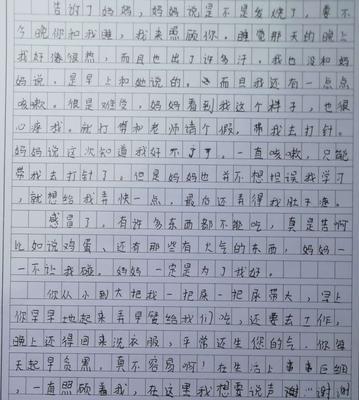 告的了妈妈，妈妈说是不是发烧了，要不
今晚你和我睡，我来照顾你。睡觉那天的晚上
我好像很热，而且也出了许多汗。我也没和妈
妈说，是早上和她说的。而且我还有一点点
咳嗽。很是难受，妈妈看到我这个样子，也很
心疼我。就打算和老师请个假，带我去打针。
妈妈说这次知道我好不了了。一直咳嗽，只能
带我去打针了。但是妈妈也并不想担误我学习
，就想给我弄快一点，最为还弄得我肚子疼。
感冒了，有许多东西都不能吃，真是苦啊
比如说鸡蛋、还有那些有火气的东西，妈妈一
一不让我碰。妈妈一定是为了我好。
你从小到大把我一把屎一把尿带大，早上
你早早地起来弄早餐给我们吃，还要去工作，
晚上还得回来洗衣服，平常还生您的气。你每
天起早贪黑，真不容易啊！在生活上事事巨细
，一直照顾着我，在这里我想要说声谢谢